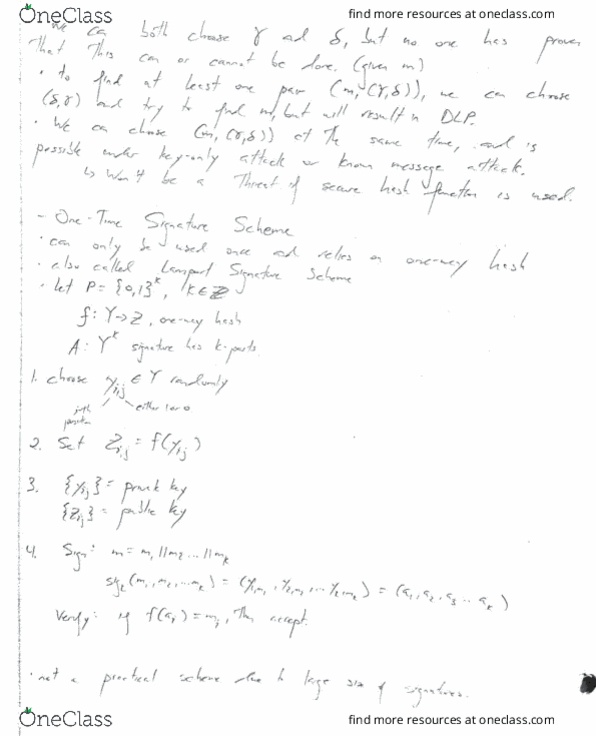 OneClass
find more resources at oneclass.com
We can both choose γ ad δ, but no one has proven
that this can or cannot be done. (given m)
· to find at least one pair (m, (γ, δ)), we can choose
(δ, γ) and try to find m, but will result in DLP.
· We can choose (m, (γ, δ)) at the same time, and is
possible under key-only attack or known message attack.
↳ Won't be a threat if secure hash function is used.
- One-Time Signature Scheme
· can only be used once ad relies on one-way hash
· also called Lamport Signature Scheme
· Let P = {0,1}^k, k ∈ Z
f: Y→Z, one-way hash
A: Y^k signature has k-parts
1. choose y_{i,j} ∈ Y randomly
ith position either 1 or 0
2. Set Z_{i,j} = f(y_{i,j})
3. {y_{i,j}} = private key
{Z_{i,j}} = public key
4. Sign: m = m_1||m_2...||m_k
sig_k(m_1, m_2, ... m_k) = (y_{1,m_1}, y_{2,m_2}, ... y_{k,m_k}) = (a_1, a_2, a_3 .. a_k)
Verify: if f(a_i) = m_i, then accept.
· not a practical scheme due to large size of signatures.
OneClass
find more resources at oneclass.com